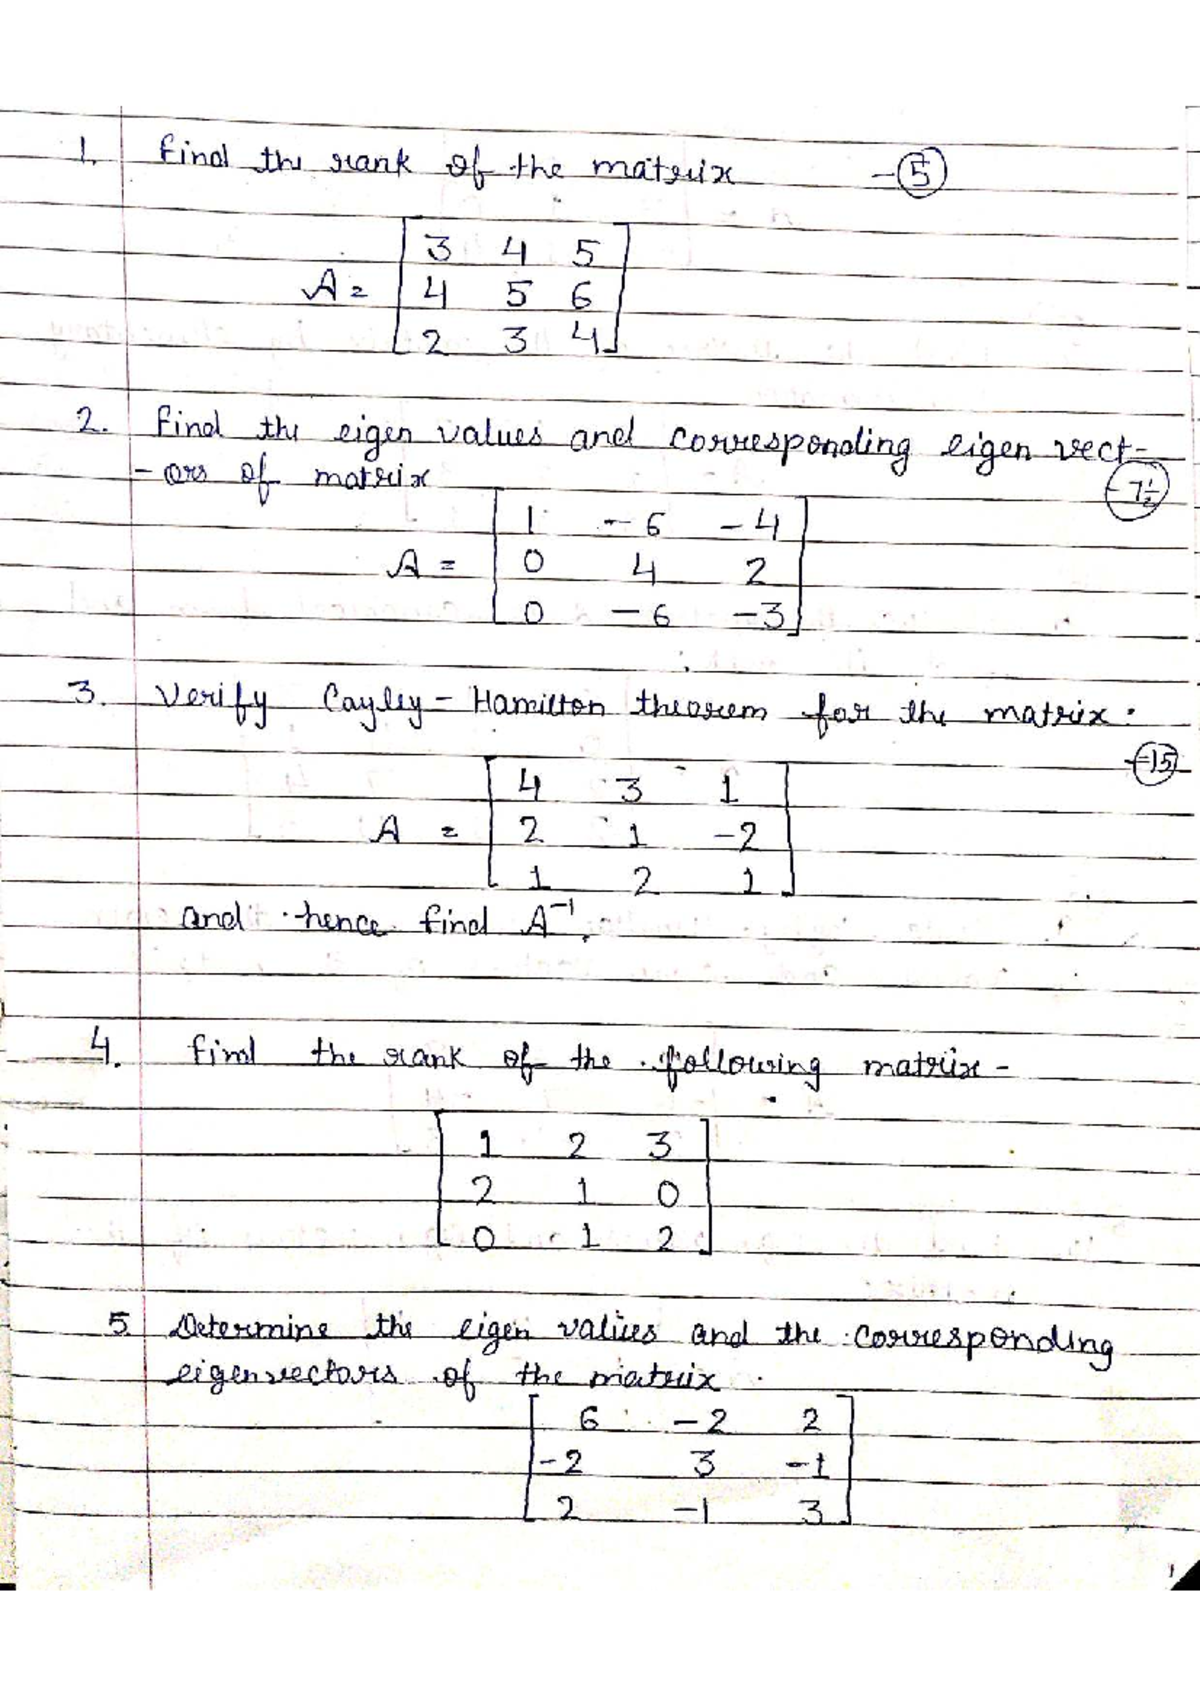 1. Find the rank of the matrix -5
A = [3 4 5
4 5 6
2 3 4]
2. Find the eigen values and corresponding eigen vect-
-ors of matrix - 7 1/2
A = [1 -6 -4
0 4 2
0 -6 -3]
3. Verify Cayley-Hamilton theorem for the matrix.
-15
A = [4 3 1
2 1 -2
1 2 1]
and hence find A⁻¹.
4. find the rank of the following matrix -
[1 2 3
2 1 0
0 1 2]
5. Determine the eigen values and the corresponding
eigenvectors of the matrix
[6 -2 2
-2 3 -1
2 -1 3]